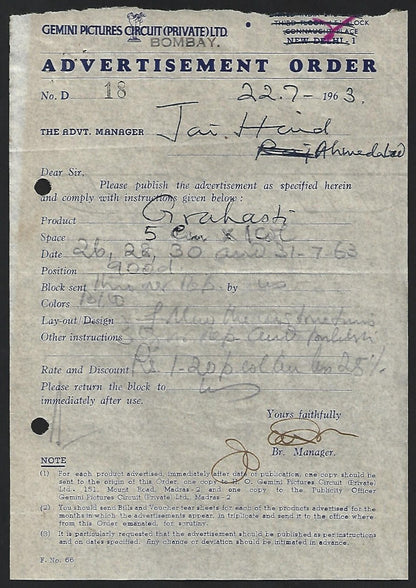 GEMINI PICTURES CIRCUIT (PRIVATE) LTD.
BOMBAY.
THIRD FLOOR, BLOCK
CONNAUGHT PLACE
NEW DELHI-1
ADVERTISEMENT ORDER
No. D 18 22.7-1963.
THE ADVT. MANAGER Jai. Hind
Ahmedabad
Dear Sir,
Please publish the advertisement as specified herein
and comply with instructions given below:
Product Grahasti
Space 5 Cm x 1 Col
Date 26, 28, 30 and 31-7-63
Position good
Block sent by us
Colors
Lay-out/Design
Other instructions
Rate and Discount Rs 1-20 p col
Please return the block to us
immediately after use.
Yours faithfully
Br. Manager.
NOTE
(1) For each product advertised, immediately after date of publication, one copy should be
sent to the origin of this Order, one copy to H. O. Gemini Pictures Circuit (Private)
Ltd., 151, Mount Road, Madras-2 and one copy to the Publicity Officer
Gemini Pictures Circuit (Private) Ltd., Madras-2
(2) You should send Bills and Voucher tear sheets for each of the products advertised for the
months in which the advertisements appear, in triplicate and send it to the office where
from this Order emanated, for scrutiny.
(3) It is particularly requested that the advertisement should be published as per instructions
and on dates specified. Any chance or deviation should be intimated in advance.
F. No. 66